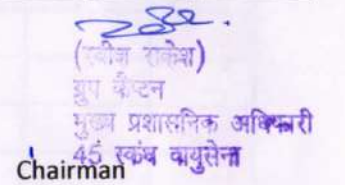 (रवीश राकेश)
ग्रुप कैप्टन
मुख्य प्रशासनिक अधिकारी
45 स्कंध वायुसेना
Chairman